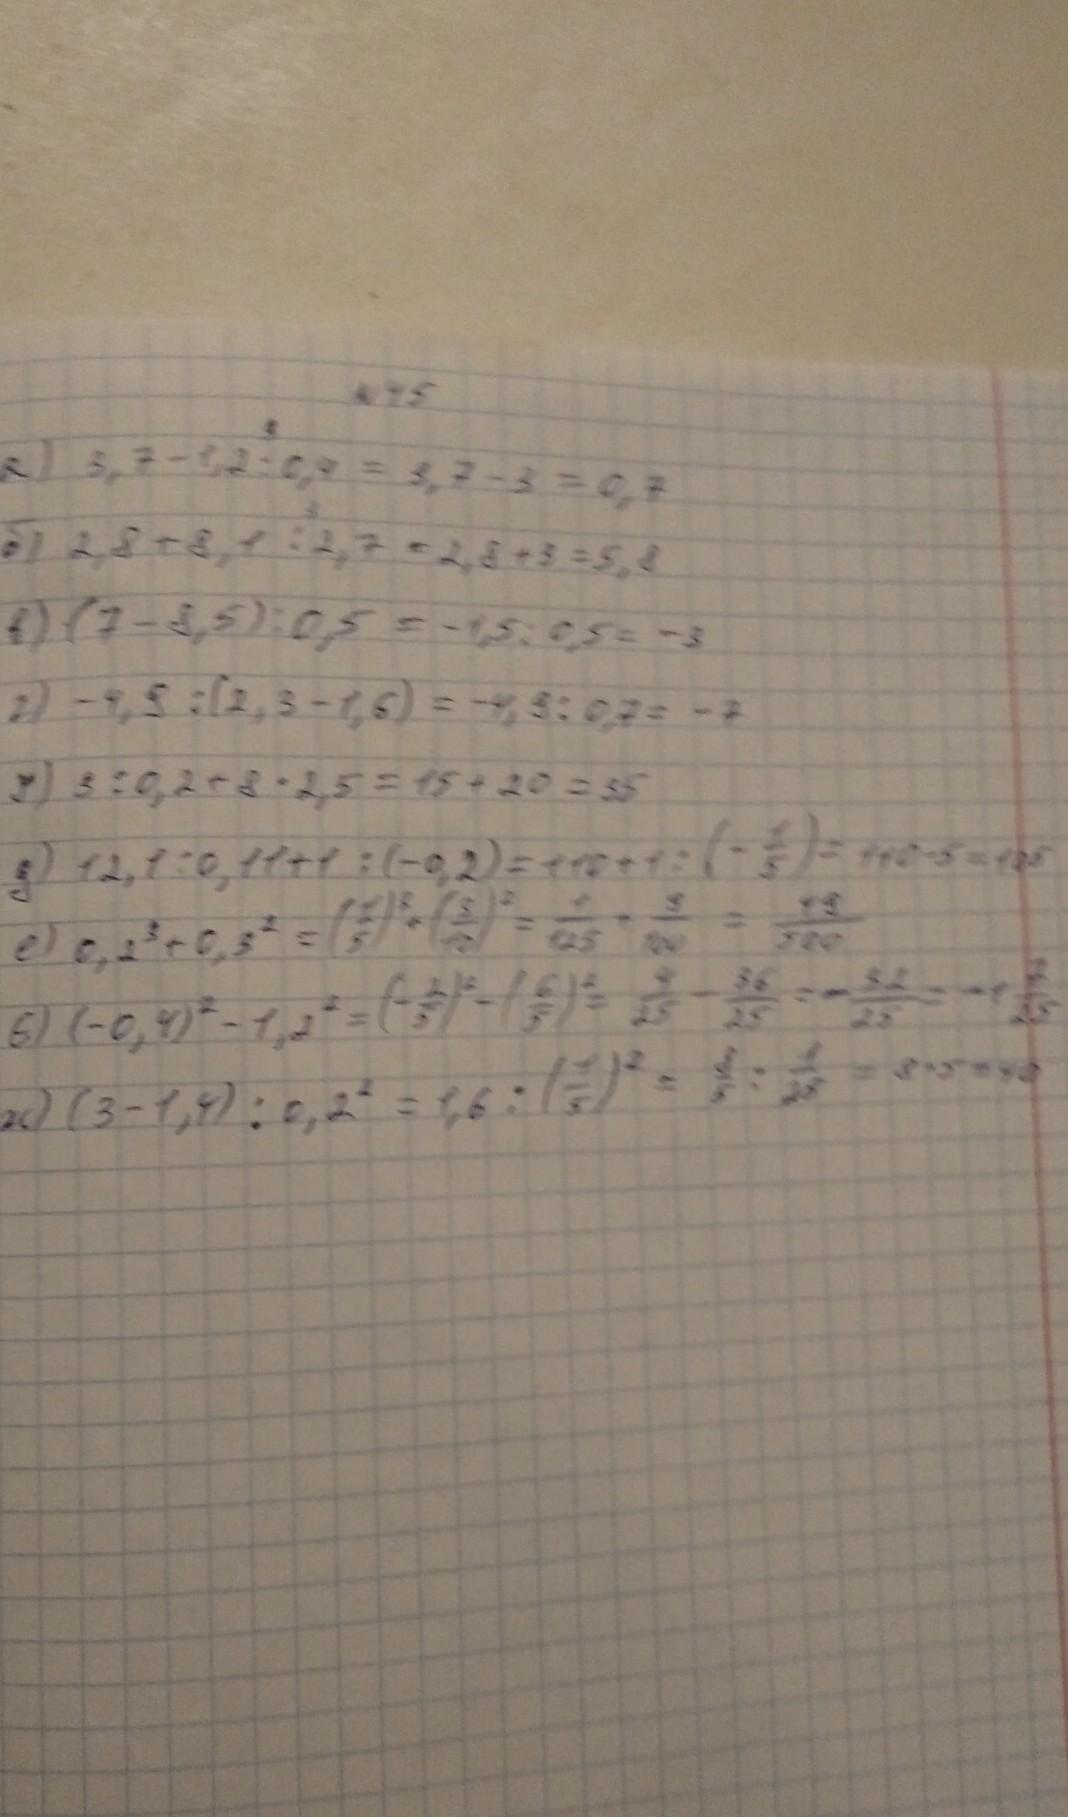 № 45
а) 3,7-1,2:0,4 = 3,7-3 = 0,7
б) 2,8+8,1:2,7 = 2,8+3 = 5,8
в) (7-8,5):0,5 = -1,5:0,5 = -3
г) -4,9:(2,3-1,6) = -4,9:0,7 = -7
3:0,2+8·2,5 = 15+20 = 35
д) 12,1:0,11+1:(-0,2) = 110+1:(-1/5) = 110-5 = 105
е) 0,2³+0,3² = (1/5)³+(3/10)² = 1/125 + 9/100 =
б) (-0,4)²-1,2² = (-2/5)²-(6/5)² = 4/25 - 36/25 = -32/25 = -1 7/25
ж) (3-1,4):0,2² = 1,6:(1/5)² = 8/5 : 1/25 = 8·5 = 40